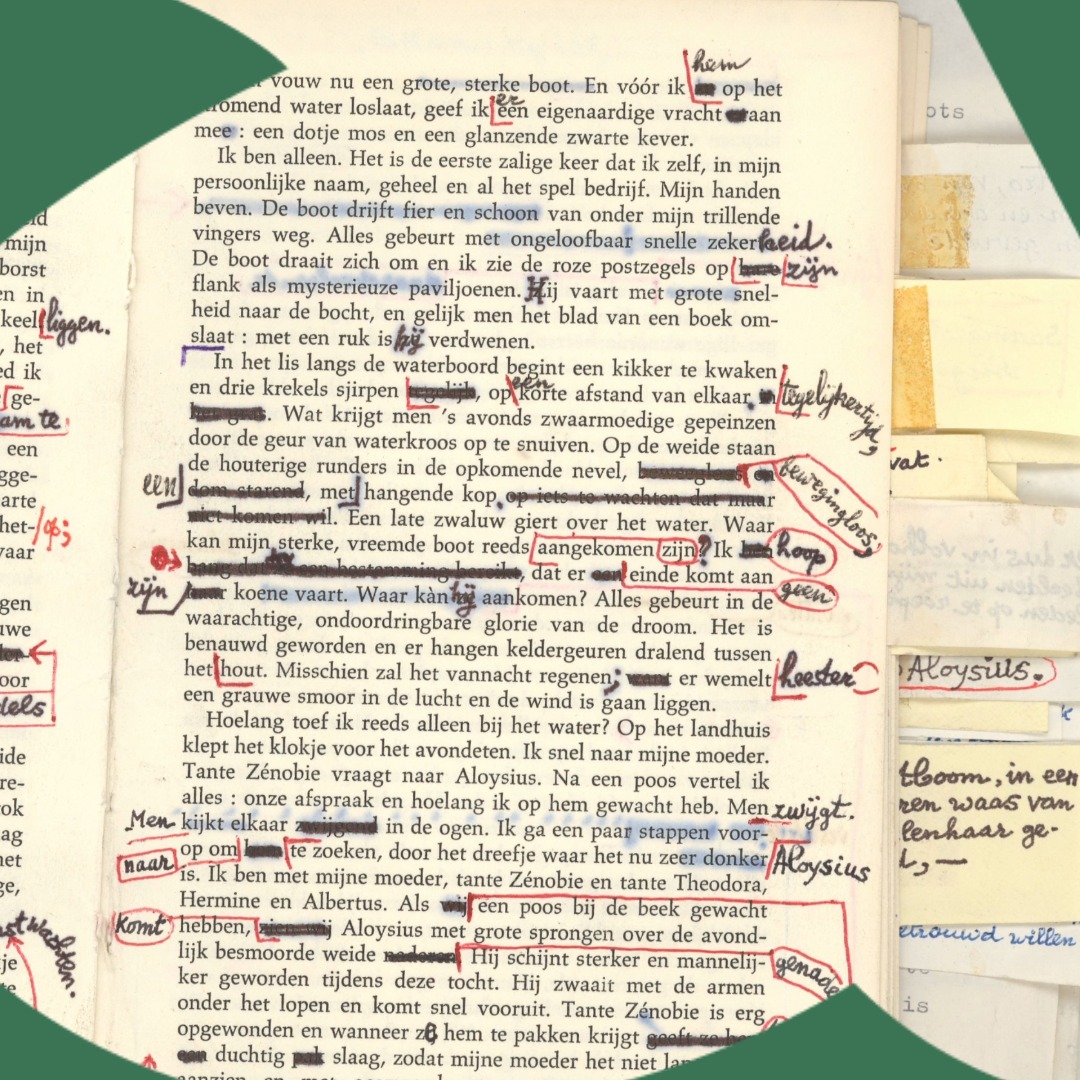 mijn
borst
en in
keel liggen.
, het
ed ik
ge-
am te
een
gge-
arte
het- / op;
vaar
gen
uwe
oor
dels
ide
re-
ok
ag
het
ge,
hem
vouw nu een grote, sterke boot. En vóór ik op het
er
stromend water loslaat, geef ik een eigenaardige vracht aan
mee : een dotje mos en een glanzende zwarte kever.
Ik ben alleen. Het is de eerste zalige keer dat ik zelf, in mijn
persoonlijke naam, geheel en al het spel bedrijf. Mijn handen
beven. De boot drijft fier en schoon van onder mijn trillende
vingers weg. Alles gebeurt met ongeloofbaar snelle zekerheid.
De boot draait zich om en ik zie de roze postzegels op hare zijn
flank als mysterieuze paviljoenen. Hij vaart met grote snel-
heid naar de bocht, en gelijk men het blad van een boek om-
slaat : met een ruk is hij verdwenen.
In het lis langs de waterboord begint een kikker te kwaken
een
en drie krekels sjirpen tegelijk, op korte afstand van elkaar, tegelijkertijd,
. Wat krijgt men 's avonds zwaarmoedige gepeinzen
door de geur van waterkroos op te snuiven. Op de weide staan
de houterige runders in de opkomende nevel, bewegingloos en bewegingloos,
een dom starend, met hangende kop, op iets te wachten dat maar
niet komen wil. Een late zwaluw giert over het water. Waar
kan mijn sterke, vreemde boot reeds aangekomen zijn? Ik ben hoop
bang dat een bestemming bereikt, dat er een einde komt aan geen
zijn haar koene vaart. Waar kàn hij aankomen? Alles gebeurt in de
waarachtige, ondoordringbare glorie van de droom. Het is
benauwd geworden en er hangen keldergeuren dralend tussen
het hout. Misschien zal het vannacht regenen; want er wemelt heester
een grauwe smoor in de lucht en de wind is gaan liggen.
Hoelang toef ik reeds alleen bij het water? Op het landhuis
klept het klokje voor het avondeten. Ik snel naar mijne moeder.
Tante Zénobie vraagt naar Aloysius. Na een poos vertel ik
alles : onze afspraak en hoelang ik op hem gewacht heb. Men zwijgt.
Men kijkt elkaar zwijgend in de ogen. Ik ga een paar stappen voor-
naar op om hem te zoeken, door het dreefje waar het nu zeer donker Aloysius
is. Ik ben met mijne moeder, tante Zénobie en tante Theodora,
Hermine en Albertus. Als wij een poos bij de beek gewacht
komt hebben, zien wij Aloysius met grote sprongen over de avond-
lijk besmoorde weide naderen. Hij schijnt sterker en mannelij- genade
ker geworden tijdens deze tocht. Hij zwaait met de armen
onder het lopen en komt snel vooruit. Tante Zénobie is erg
opgewonden en wanneer ze hem te pakken krijgt geeft ze
een duchtig pak slaag, zodat mijne moeder het niet
ots
vat.
Aloysius.
boom, in een
ren waas van
lenhaar ge-
etrouwd willen
is